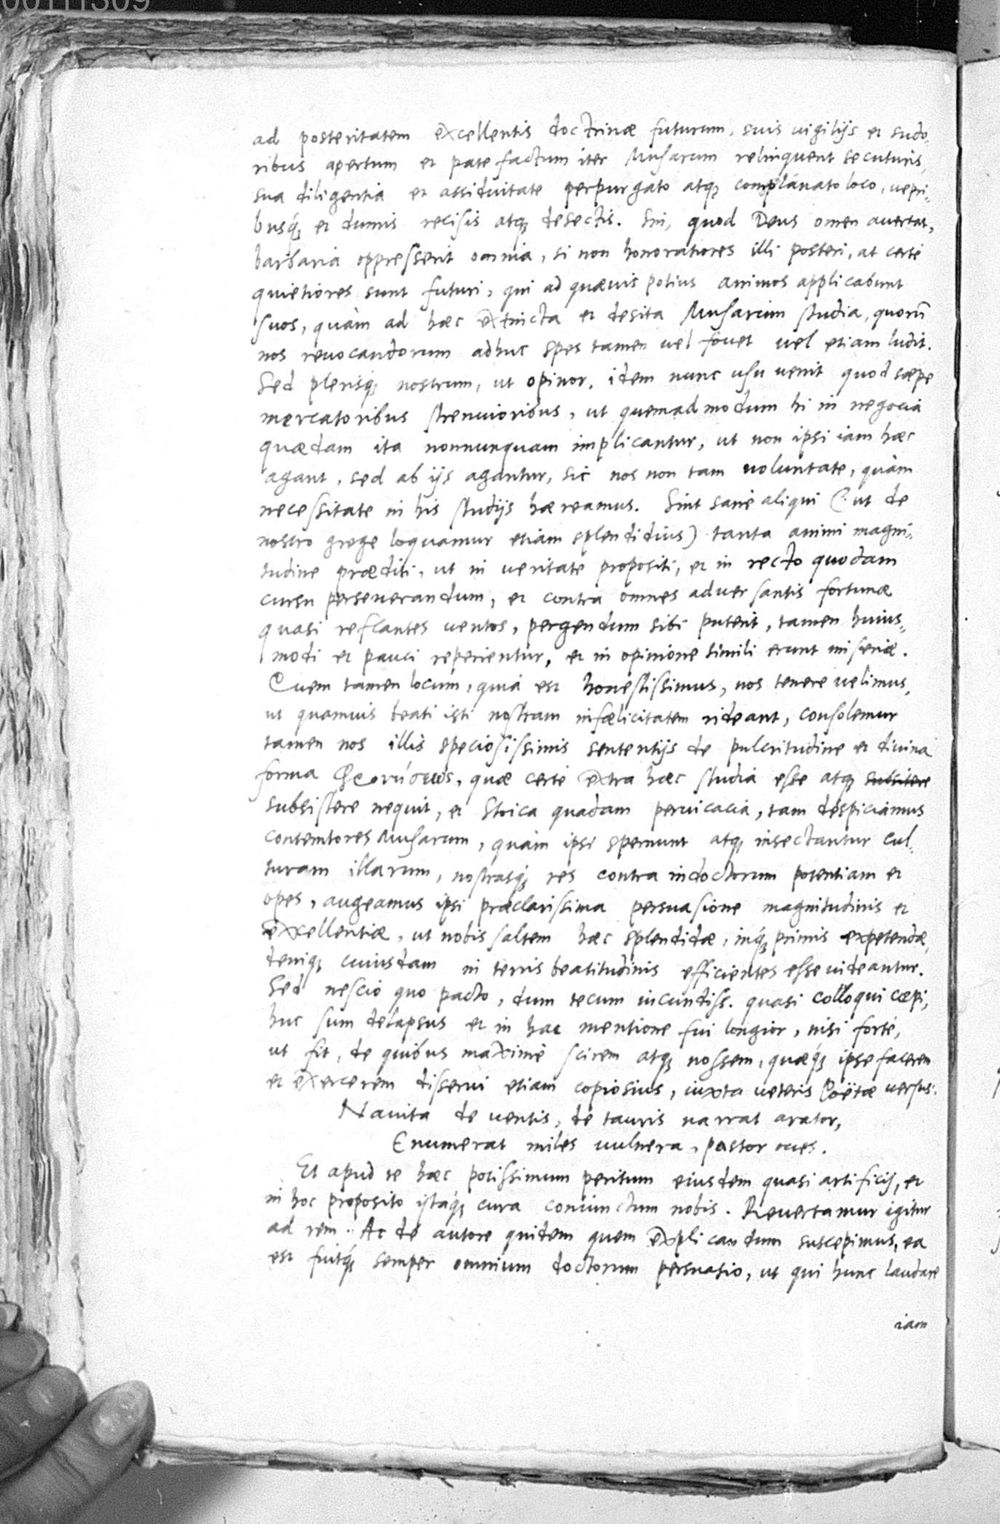 00111309
ad posteritatem excellentis doctrinæ futurum, suis vigilijs et sudo-
ribus apertum et patefactum iter Musarum relinquent secuturis,
sua diligentia et assiduitate perpurgato atq; complanato loco, uepri-
busq́; et dumis recisis atq; desectis. Sin, quod Deus omen auertat,
barbaria oppresserit omnia, si non honoratiores illi posteri, at certe
quietiores sunt futuri, qui ad quæuis potius animos applicabunt
suos, quàm ad hæc extincta et desita Musarum studia, quorū
nos reuocandorum adhuc spes tamen uel fouet uel etiam ludit.
Sed plerisq; nostrum, ut opinor, idem nunc usu uenit quod sæpe
mercatoribus strenuioribus, ut quemadmodum hi in negocia
quædam ita nonnunquam implicantur, ut non ipsi iam hæc
agant, sed ab ijs agantur, sic nos non tam uoluntate, quàm
necessitate in his studijs hæreamus. Sint sanè aliqui (ut de
nostro grege loquamur etiam splendidius) tanta animi magni-
tudine præditi, ut in ueritate propositi, et in recto quodam
cursu perseuerandum, et contra omnes aduersantis fortunæ
quasi reflantes uentos, pergendum sibi putent, tamen huius-
modi et pauci reperientur, et in opinione simili erunt miseriæ.
Quem tamen locum, quia est honestissimus, nos tenere uelimus,
ut quamuis beati isti nostram infœlicitatem rideant, consolemur
tamen nos illis speciosissimis sententijs de pulcritudine et diuina
forma quæ certè extra hæc studia esse atq; subsitere
subsistere nequit, et Stoica quadam peruicacia, tam despiciamus
contemtores Musarum, quàm ipsi spernunt atq; insectantur cul-
turam illarum, nostrasq́; res contra indoctorum potentiam et
opes, augeamus ipsi præclarissima persuasione magnitudinis et
excellentiæ, ut nobis saltem hæc splendidæ, inq́; primis expetendæ,
deniq; cuiusdam in terris beatitudinis efficientes esse uideantur.
Sed nescio quo pacto, dum tecum iucundiss. quasi colloqui cœpi,
huc sum delapsus et in hac mentione fui longior, nisi fortè,
ut fit, de quibus maximè scirem atq; nossem, quæq́; ipse facerem
et exercerem disserui etiam copiosius, iuxta ueteris Poëtæ uersus:
Nauita de uentis, de tauris narrat arator,
Enumerat miles uulnera, pastor oues.
Et apud te hæc potissimum peritum eiusdem quasi artificij, et
in hoc proposito istaq́; cura coniunctum nobis. Reuertamur igitur
ad rem. Ac de autore quidem quem explicandum suscepimus, ea
est fuitq́; semper omnium doctorum persuasio, ut qui hunc laudare
iam